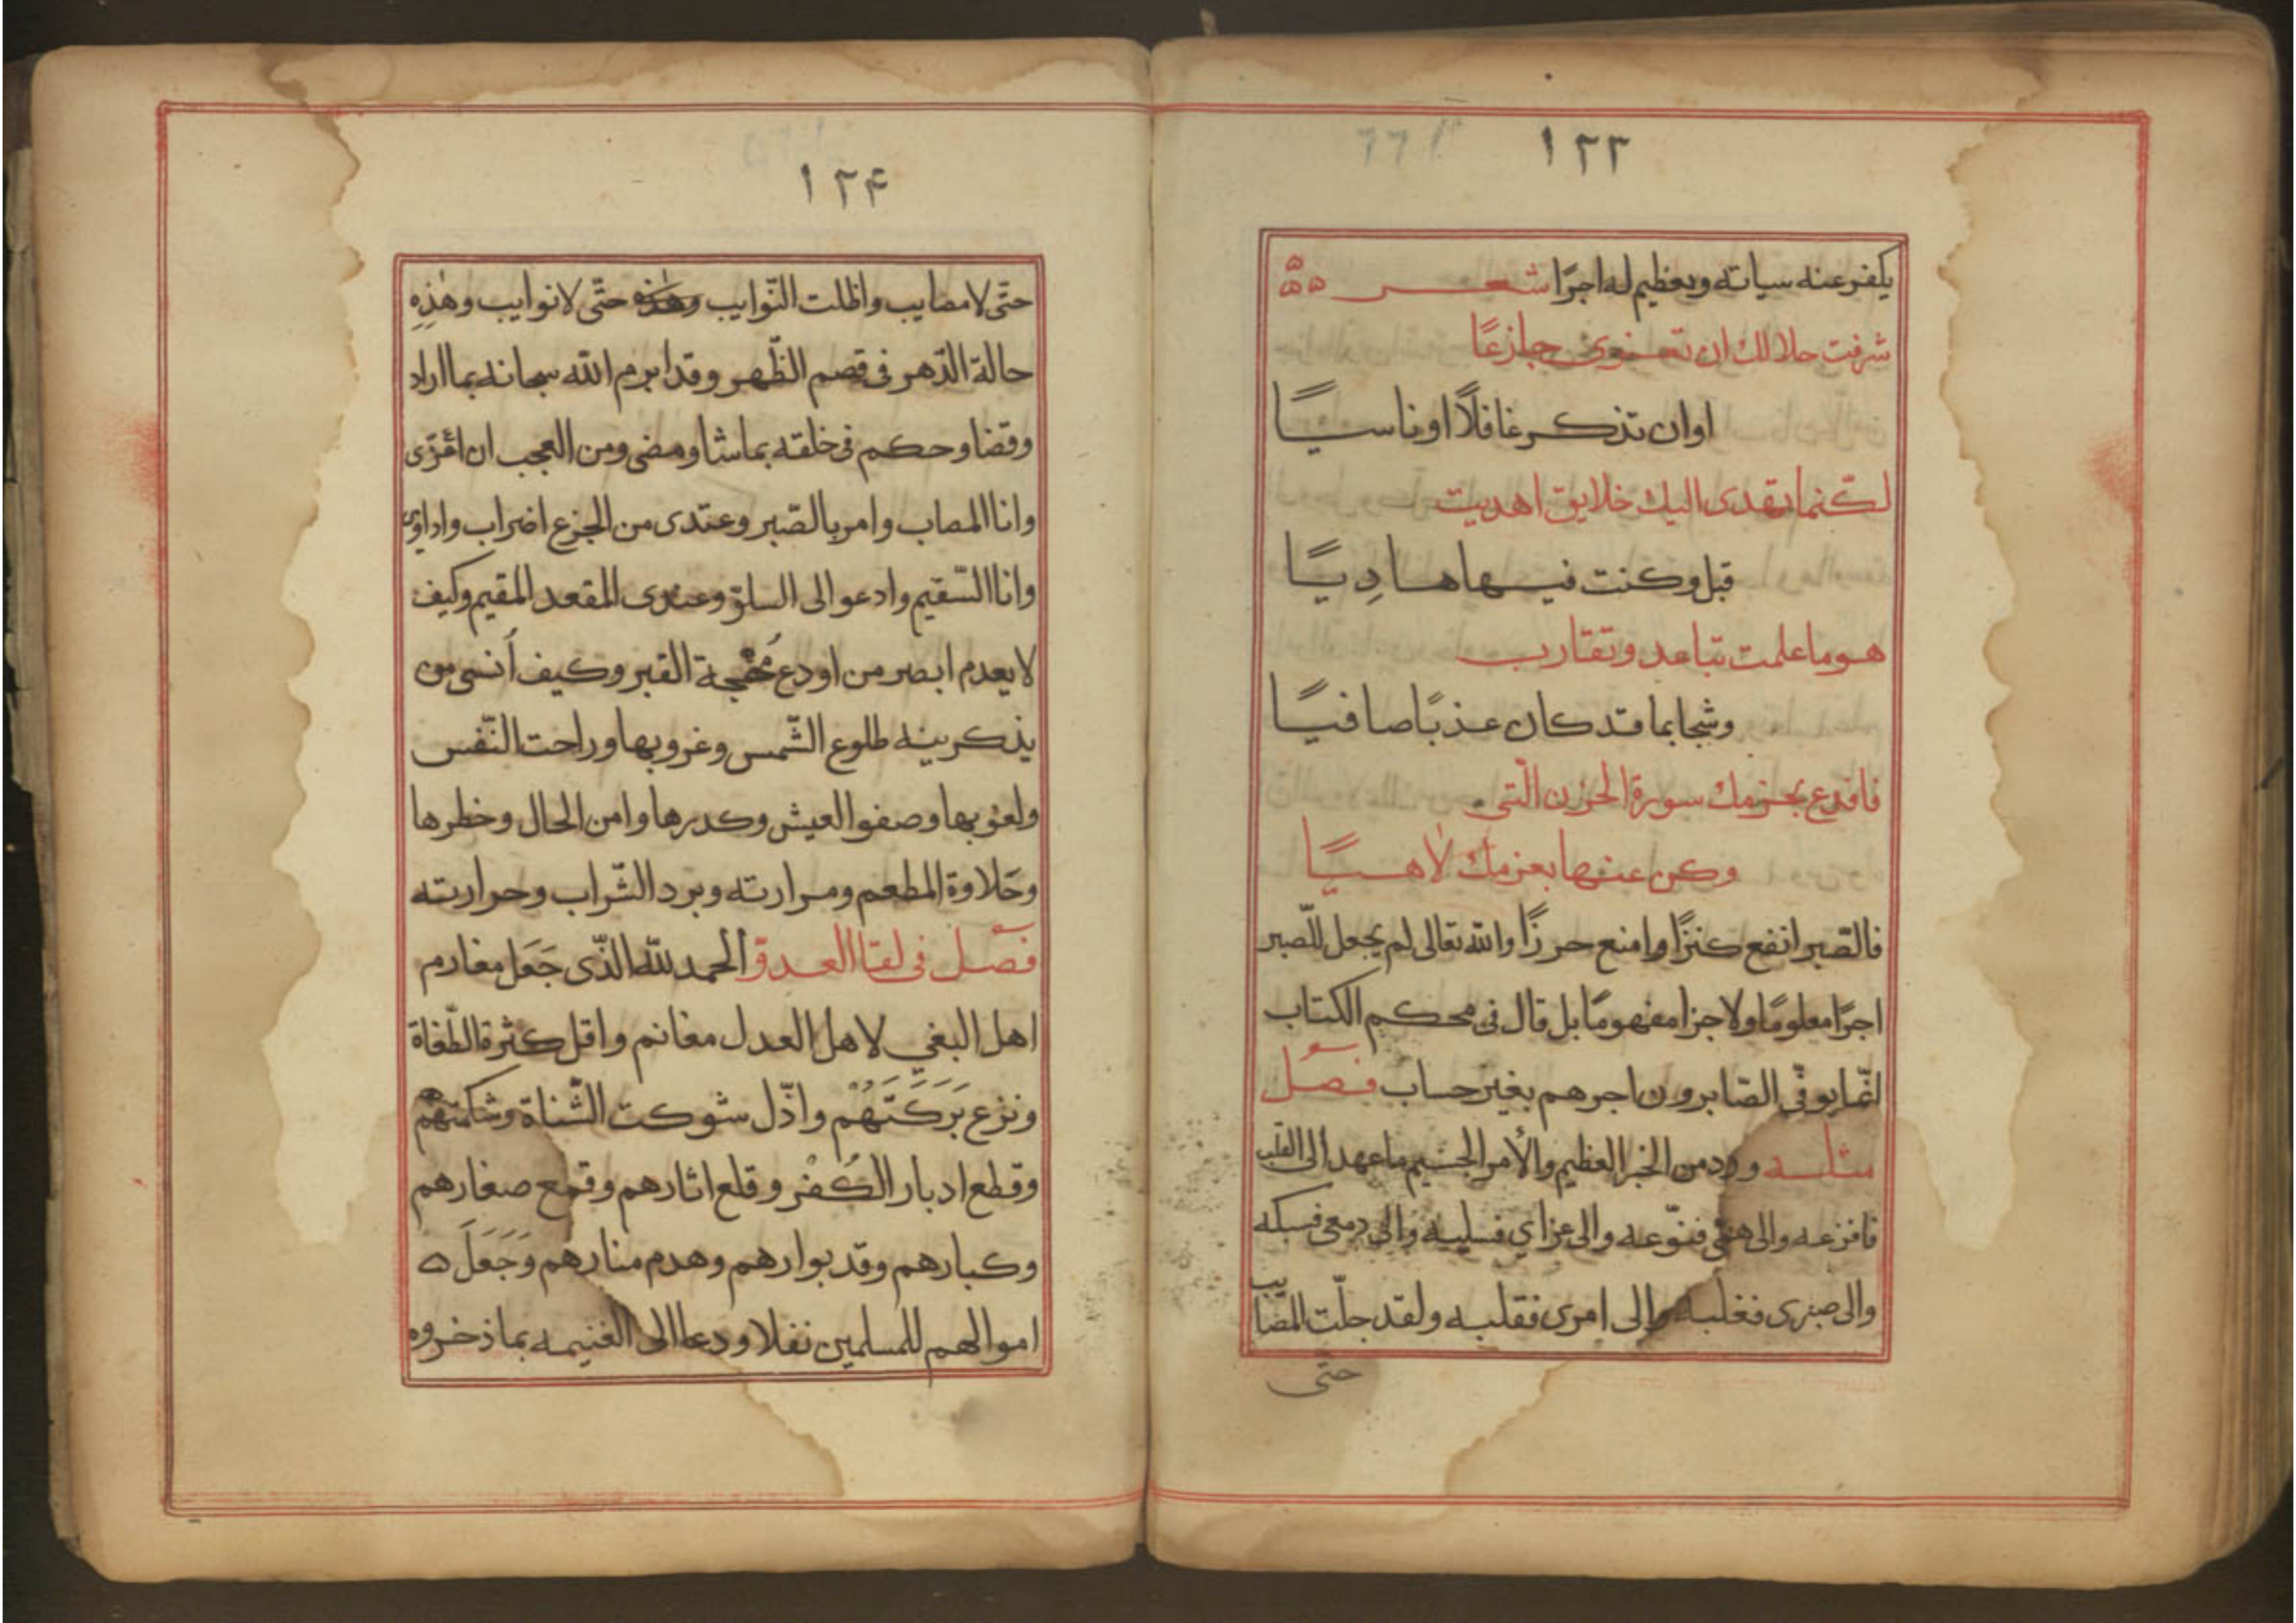 ١٢٣
يكفر عنه سياته ويعظيم له اجرًا شعر
شرفت حلالك ان تحنوى جازعًا
اوان تذكر غافلًا اوناسيًا
لكنما تقدى اليك خلايق اهديت
قبل وكنت فيها هادِيًا
هو ما علمت تباعد وتقارب
وشجا بما قد كان عذبًا صافيًا
فاقدع بحزمك سورة الحزن الّتى
وكن عنها بعزمك لاهيًا
فالصّبر انفع كنزًا وامنع حرزًا والله تعالى لم يجعل للّصبر
اجرًا معلومًا ولا جزا مفهومًا بل قال فى محكم الكتاب
انّما يوفّى الصّابرون اجرهم بغير حساب فصل
مثله ورد من الخبر العظيم والأمر الجسيم ما عهد الى القلب
فافزعه والى همّى فنوّعه والى عزاي فسلبه والى دمعى فسبكه
والى صبرى فغلبه والى امرى فقلبه ولقد جلّت المصايب
حتّى
١٢۴
حتّى لا مصايب واظلت النّوايب وهذه حتّى لا نوايب وهٰذِهِ
حالة الدّهر فى قصم الظّهر وقد ابرم الله سبحانه بما اراد
وقضا وحكم فى خلقه بما شا ومضى ومن العجب ان اعّزى
وانا المصاب وامر بالصّبر وعندى من الجزع اضراب واداوى
وانا السّقيم وادعو الى السلوّ وعندى المقعد المقيم وكيف
لا يعدم ابصر من اودع مُهجة القبر وكيف اَنسى من
يذكرينه طلوع الشّمس وغروبها وراحت النّفس
ولغوبها وصفو العيش وكدرها وامن الحال وخطرها
وحَلاوة المطعم ومرارته وبرد الشّراب وحرارته
فصل فى لقا العدوّ الحمد لله الّذى جَعَل مغارم
اهل البغي لاهل العدل مغانم واقل كثرة الطّغاة
ونزع بَرَكَتَهُم واذّل شوكت الشّناة وشكمتهم
وقطع ادبار الكُفْر وقلع اثارهم وقمع صغارهم
وكبارهم وقد بوارهم وهدم منارهم وَجَعَلَ ه
اموالهم للمسلمين نفلا ودعا الى الغنيمه بما ذخروه